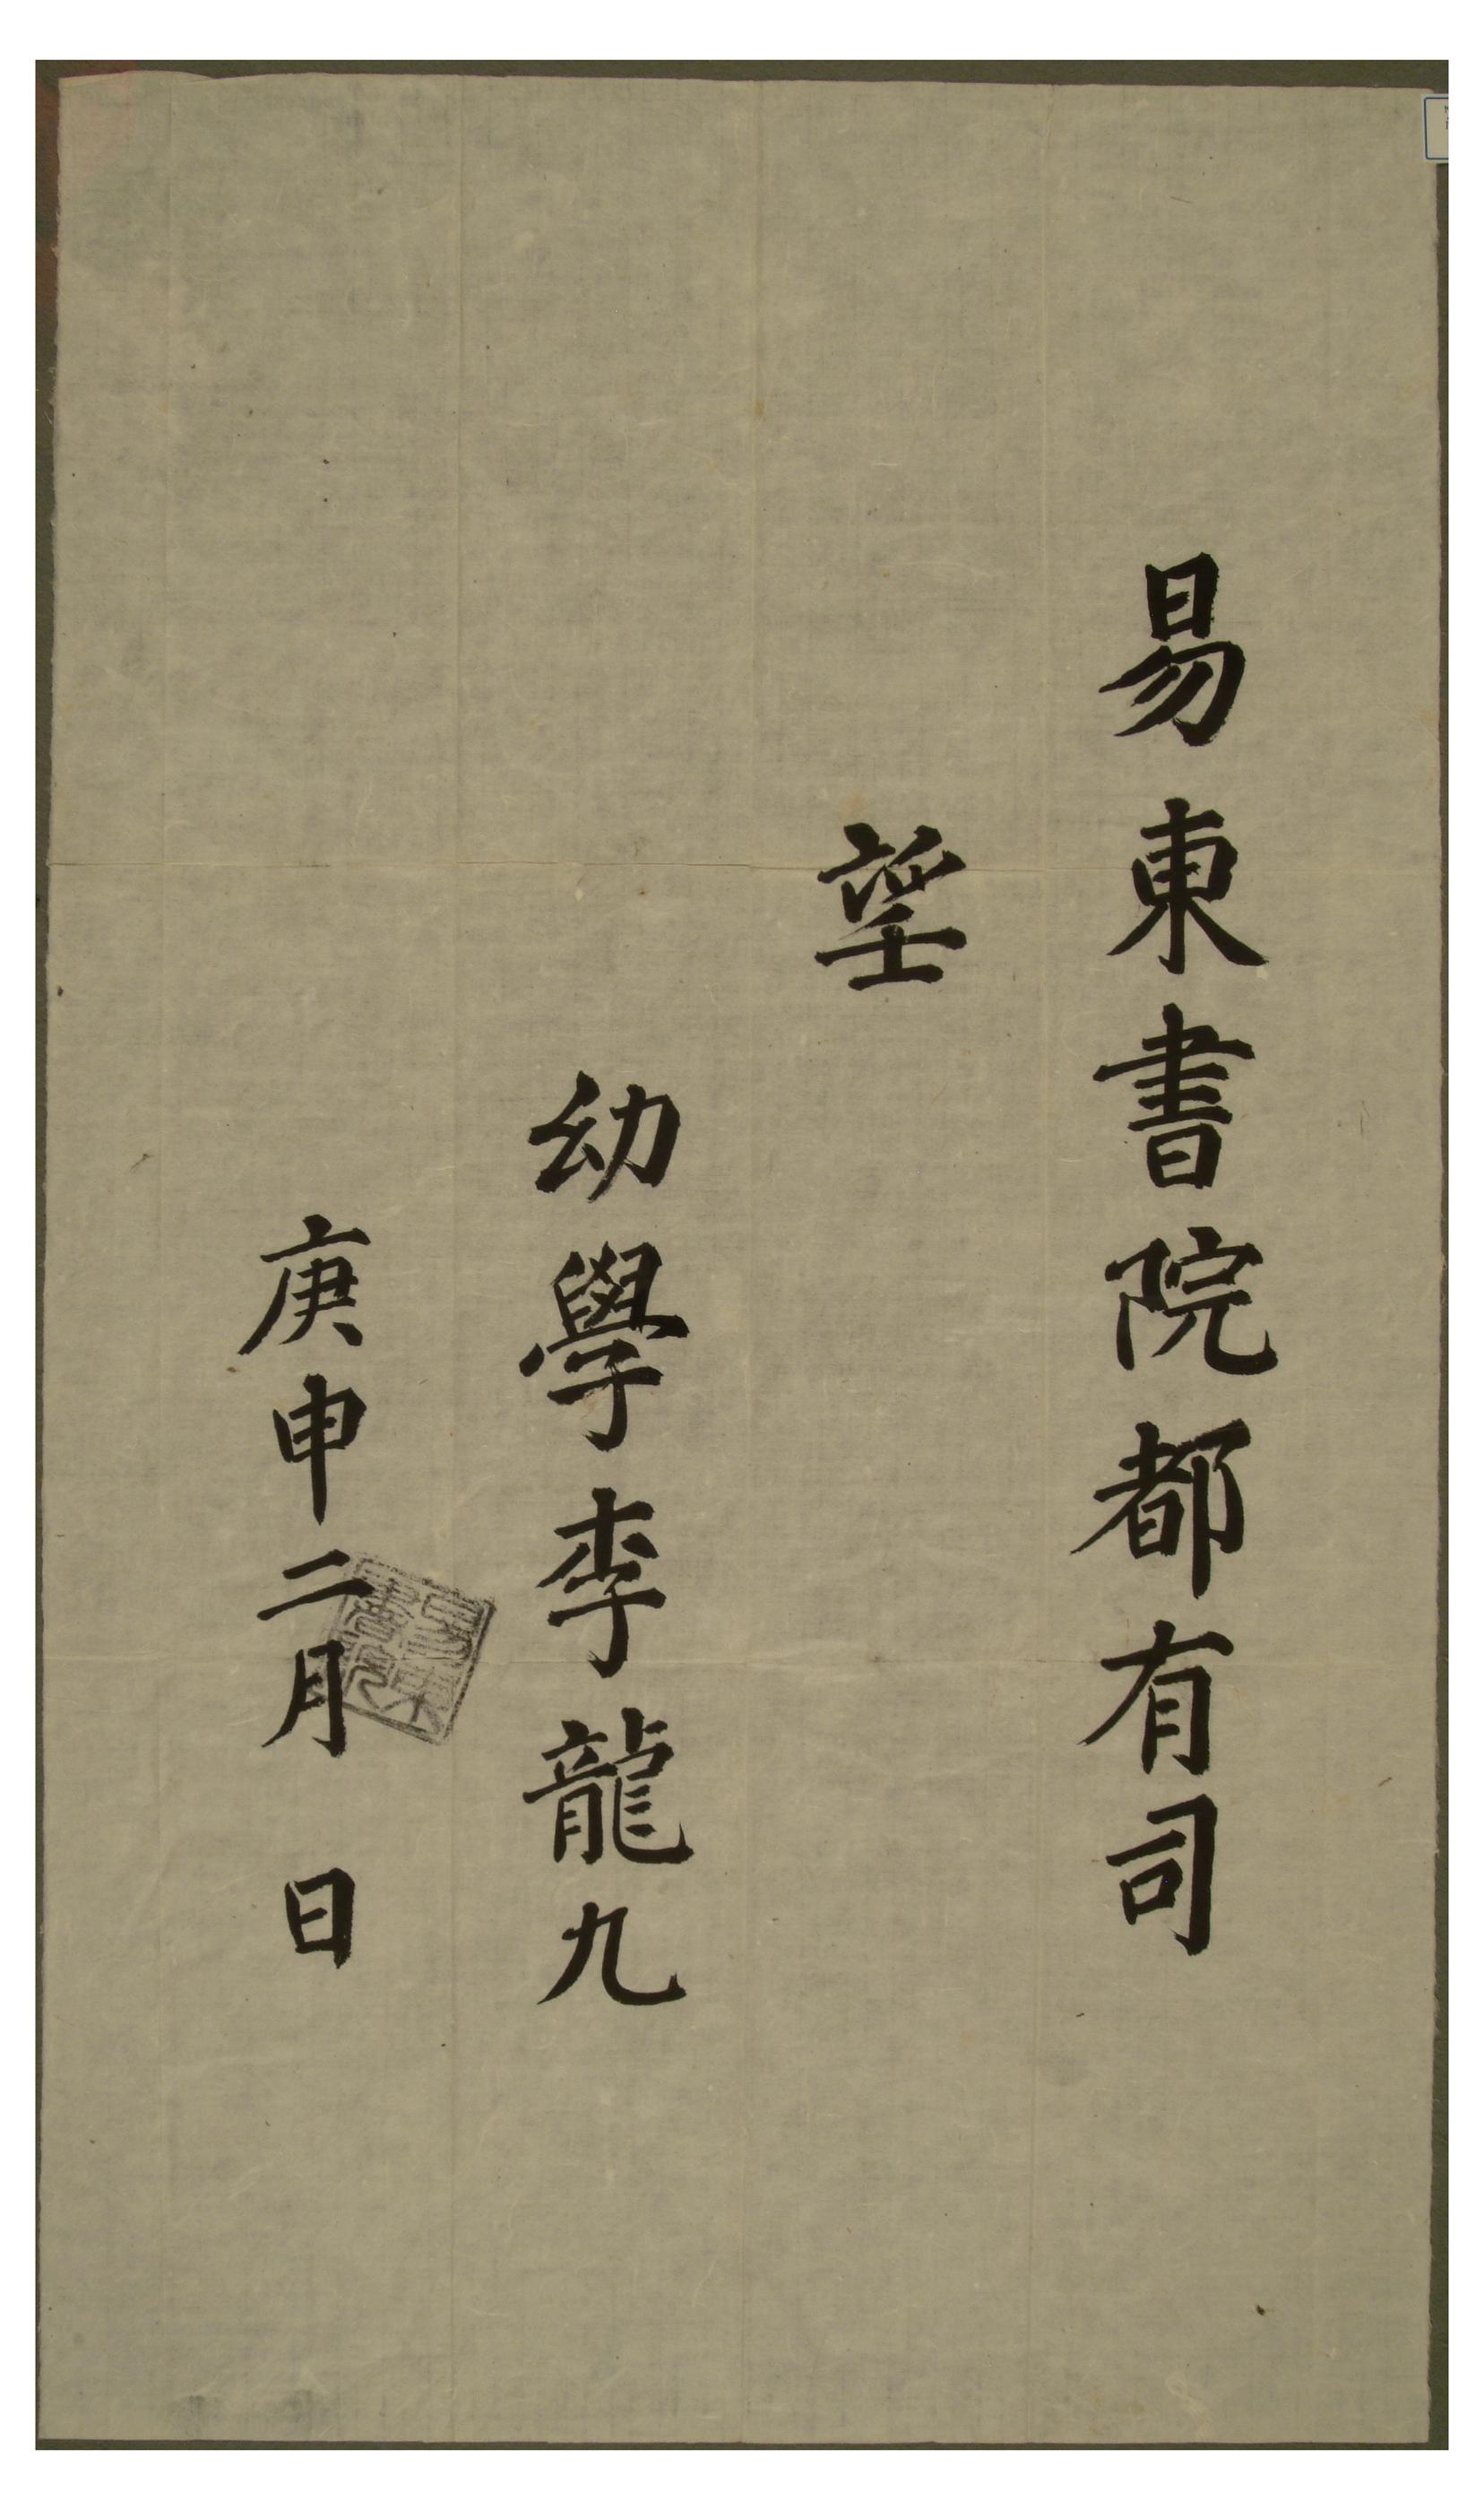 易東書院都有司
望
幼學李龍九
庚申二月 日
易東
書院